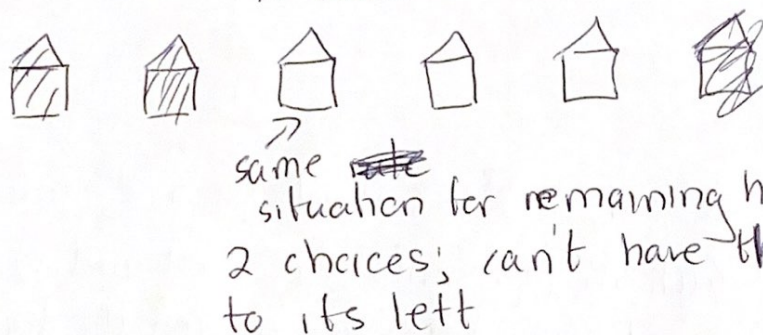 same
situation for remaining h
2 choices; can't have th
to its left